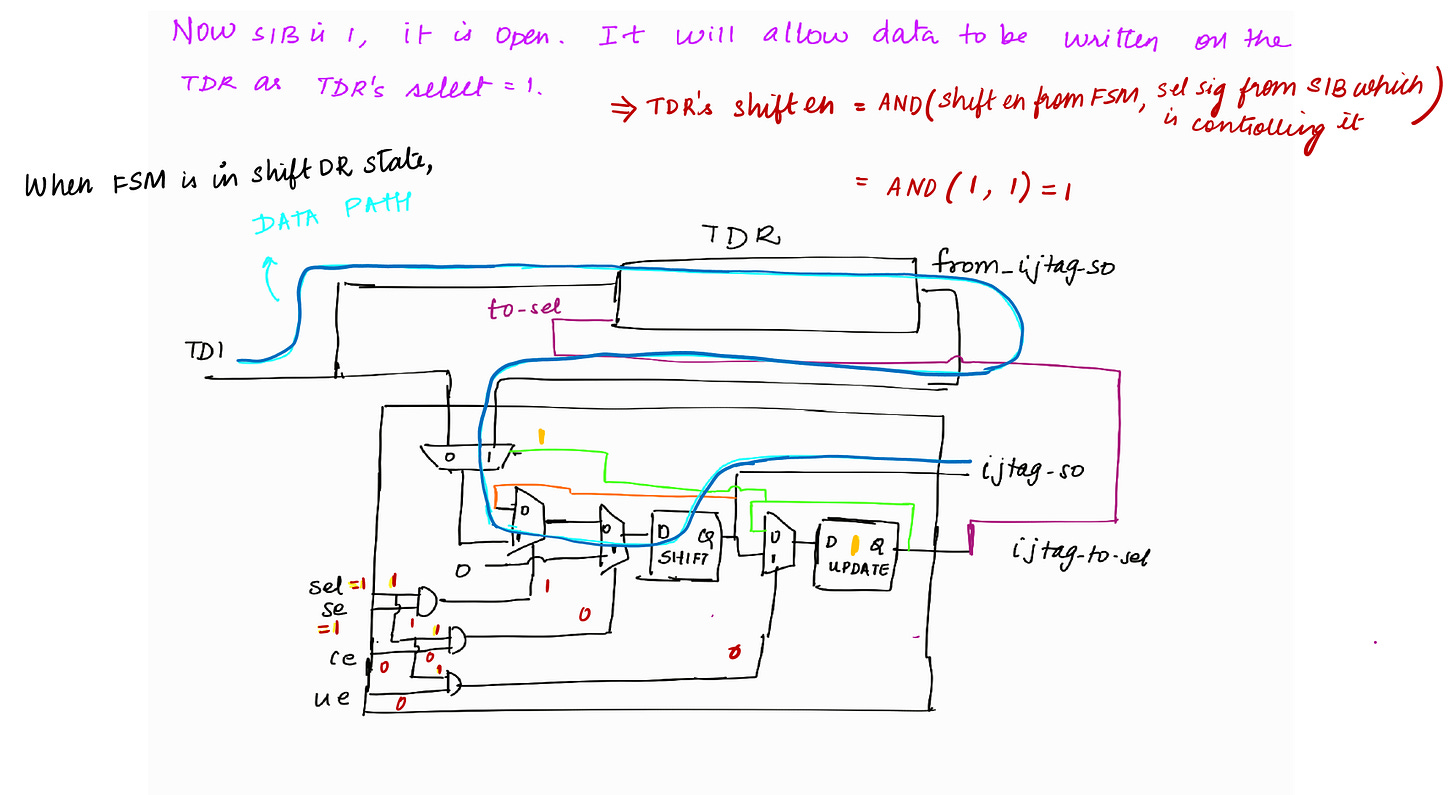 Now SIB is 1, it is open. It will allow data to be written on the
TDR as TDR's select = 1.
⇒ TDR's shift en = AND(shift en from FSM, sel sig from SIB which
is controlling it)
When FSM is in shift DR state,
= AND (1, 1) = 1
DATA PATH
TDR
from_ijtag-so
to-sel
TDI
1
0 1
ijtag-so
0
0
D Q
SHIFT
0
1
D 1 Q
UPDATE
ijtag-to-sel
0
sel =1 1
1
se
=1
1 1
0
ce 0 0
1
0
ue 0